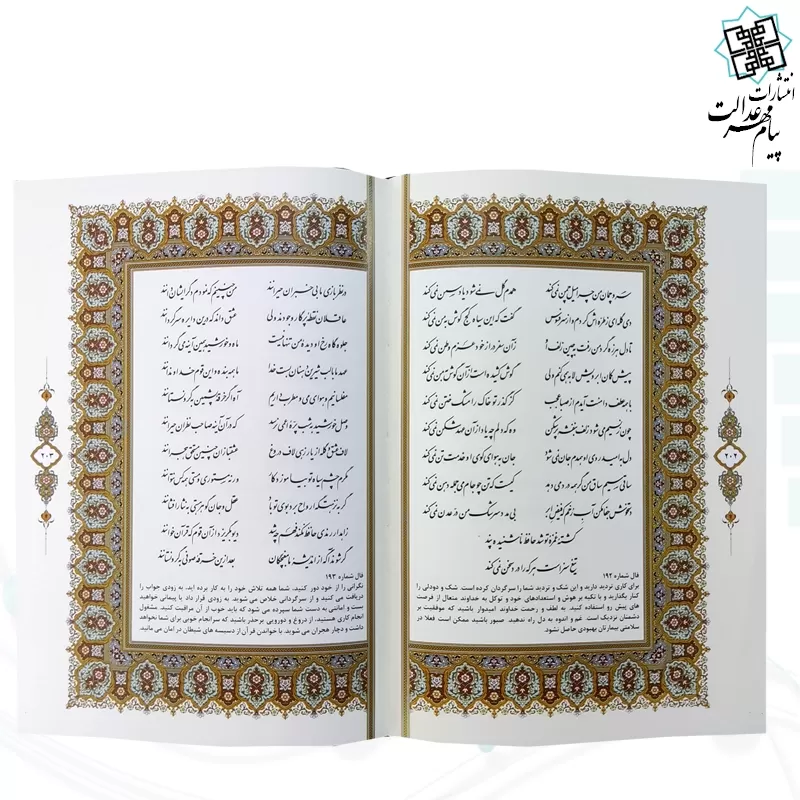 انتشارات
پیام مهر عدالت
سرو چمان من چرا میل چمن نمی‌کند همدم گل نمی‌شود یاد سمن نمی‌کند
دی گله‌ای ز طره‌اش کردم و از سر فسوس گفت که این سیاه کج گوش به من نمی‌کند
تا دل هرزه گرد من رفت به چین زلف او زان سفر دراز خود عزم وطن نمی‌کند
پیش کمان ابرویش لابه همی‌کنم ولی گوش کشیده است از آن گوش به من نمی‌کند
با همه عطف دامنت آیدم از صبا عجب کز گذر تو خاک را مشک ختن نمی‌کند
چون ز نسیم می‌شود زلف بنفشه پرشکن وه که دلم چه یاد از آن عهدشکن نمی‌کند
دل به امید روی او همدم جان نمی‌شود جان به هوای کوی او خدمت تن نمی‌کند
ساقی سیم ساق من گر همه درد می‌دهد کیست که تن چو جام می جمله دهن نمی‌کند
دستخوش جفا مکن آب رخم که فیض ابر بی مدد سرشک من در عدن نمی‌کند
کشته غمزه تو شد حافظ ناشنیده پند
تیغ سزاست هر که را درد سخن نمی‌کند
فال شماره ۱۹۲
برای کاری تردید دارید و این شک و تردید شما را سرگردان کرده است. شک و دودلی را
کنار بگذارید و با تکیه بر هوش و استعدادهای خود و توکل به خداوند متعال از فرصت
های پیش رو استفاده کنید. به لطف و رحمت خداوند امیدوار باشید که موفقیت بر
دشمنان نزدیک است. غم و اندوه به دل راه ندهید. صبور باشید ممکن است فعلا در
سلامتی بیمارتان بهبودی حاصل نشود.
۲۰۲
در نظربازی ما بی‌خبران حیرانند من چنینم که نمودم دگر ایشان دانند
عاقلان نقطه پرگار وجودند ولی عشق داند که در این دایره سرگردانند
جلوه‌گاه رخ او دیده من تنها نیست ماه و خورشید همین آینه می‌گردانند
عهد ما با لب شیرین دهنان بست خدا ما همه بنده و این قوم خداوندانند
مفلسانیم و هوای می و مطرب داریم آه اگر خرقه پشمین به گرو نستانند
وصل خورشید به شب‌پره اعمی نرسد که در آن آینه صاحب نظران حیرانند
لاف عشق و گله از یار زهی لاف دروغ عشقبازان چنین مستحق هجرانند
مگرم چشم سیاه تو بیاموزد کار ور نه مستوری و مستی همه کس نتوانند
گر به نزهتگه ارواح برد بوی تو باد عقل و جان گوهر هستی به نثار افشانند
زاهد ار رندی حافظ نکند فهم چه شد دیو بگریزد از آن قوم که قرآن خوانند
گر شوند آگه از اندیشه ما مغبچگان بعد از این خرقه صوفی به گرو نستانند
فال شماره ۱۹۳
نگرانی را از خود دور کنید، شما همه تلاش خود را به کار برده اید. به زودی جواب را
دریافت می کنید و از سرگردانی خلاص می شوید. به زودی قرار داد یا پیمانی خواهید
بست و امانتی به دست شما سپرده می شود که باید خوب از آن مراقبت کنید. مشغول
انجام کاری هستید. از دروغ و دورویی برحذر باشید که سرانجام خوبی برای شما نخواهد
داشت و دچار هجران می شوید. با خواندن قرآن از دسیسه های شیطان در امان می مانید.
۲۰۳